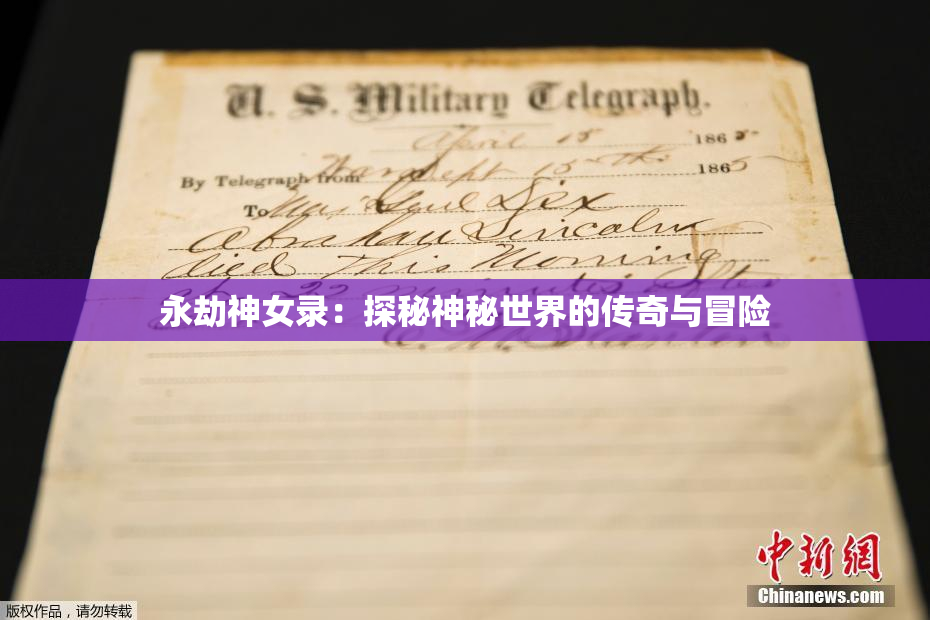 U. S. Military Telegraph.
April 15 1865
By Telegraph from War Dept 15th 1865
To Maj Genl Dix
Abraham Lincoln
died This Morning
at 22 minutes after
永劫神女录：探秘神秘世界的传奇与冒险
E. M. Stanton
中新网
Chinanews.com
版权作品，请勿转载